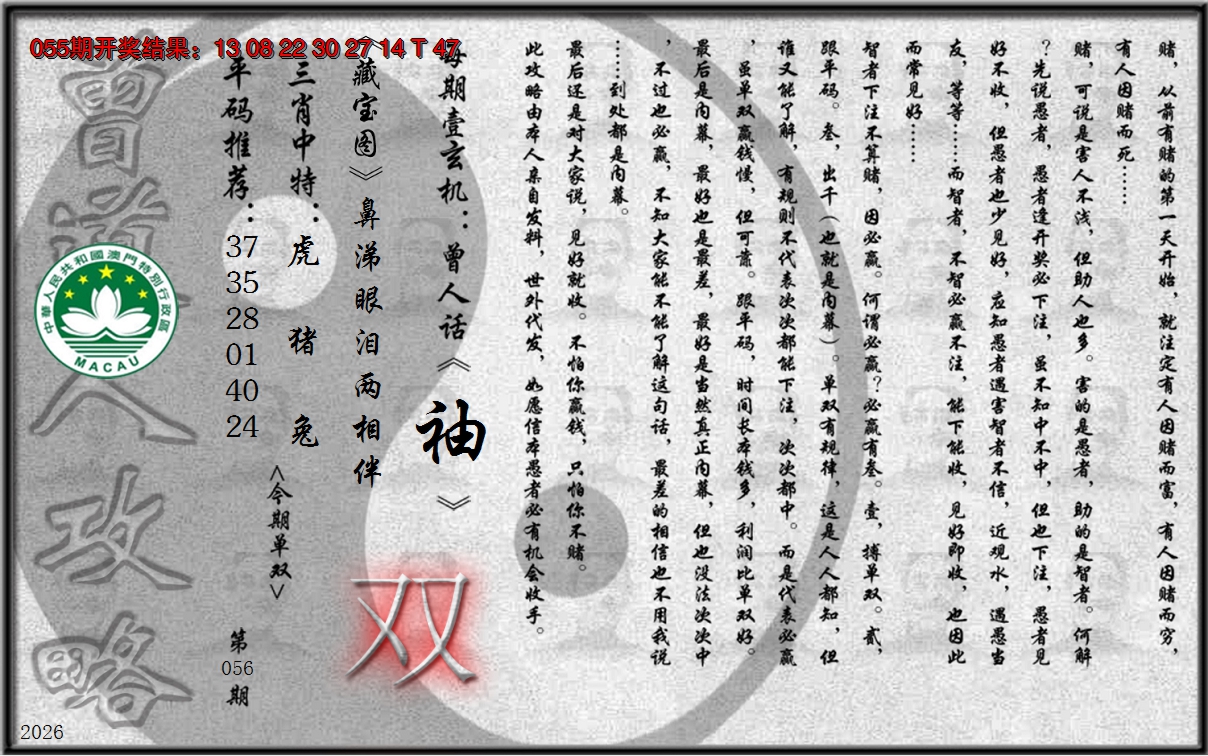 055期开奖结果：13 08 22 30 27 14 T 47
赌，从前有赌的第一天开始，就注定有人因赌而富，有人因赌而穷，
有人因赌而死……
赌，可说是害人不浅，但助人也多。害的是愚者，助的是智者。何解
？先说愚者，愚者逢开奖必下注，虽不知中不中，但也下注，愚者见
好不收，但愚者也少见好，应知愚者遇害智者不信，近观水，遇愚当
友，等等……而智者，不智必赢不注，能下能收，见好即收，也因此
而常见好……
智者下注不算赌，因必赢。何谓必赢？必赢有叁。壹，搏单双。贰，
跟平码。叁，出千（也就是内幕）。单双有规律，这是人人都知，但
谁又能了解，有规则不代表次次都能下注，次次都中。而是代表必赢
，虽单双赢钱慢，但可靠。跟平码，时间长本钱多，利润比单双好。
最后是内幕，最好也是最差，最好是当然真正内幕，但也没法次次中
，不过也必赢，不知大家能不能了解这句话，最差的相信也不用我说
……到处都是内幕。
最后还是对大家说，见好就收。不怕你赢钱，只怕你不赌。
此攻略由本人亲自发料，世外代发，如愿信本愚者必有机会收手。
每期壹玄机：曾人话《袖》
《藏宝图》鼻涕眼泪两相伴
双
三肖中特：虎 猪 兔
<今期单双>
平码推荐：37 35 28 01 40 24
第056期
曾道人攻略
中華人民共和國澳門特別行政區
MACAU
2026